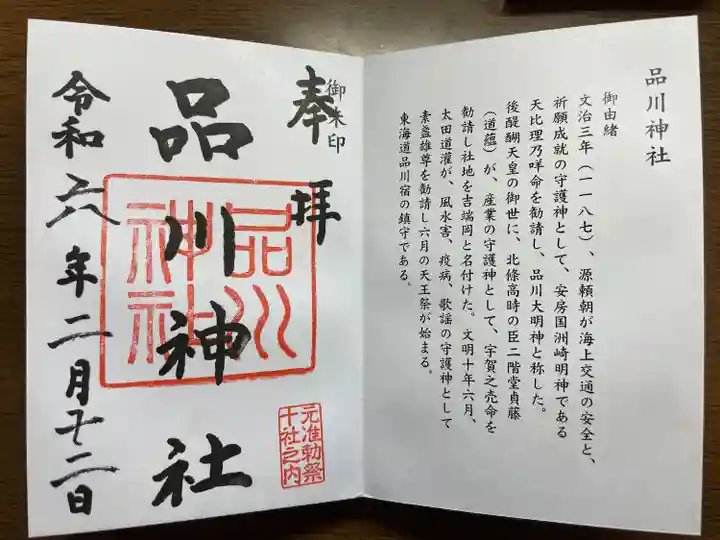 品川神社
御由緒
文治三年(一一八七)、源頼朝が海上交通の安全と、
祈願成就の守護神として、安房国洲崎明神である
天比理乃咩命を勧請し、品川大明神と称した。
後醍醐天皇の御世に、北條高時の臣二階堂貞藤
(道蘊)が、産業の守護神として、宇賀之売命を
勧請し社地を吉端岡と名付けた。文明十年六月、
太田道灌が、風水害、疫病、歌謡の守護神として
素盞雄尊を勧請し六月の天王祭が始まる。
東海道品川宿の鎮守である。
御朱印
奉拝
品川神社
品川
神社
元准勅祭
十社之内
令和六年二月十二日